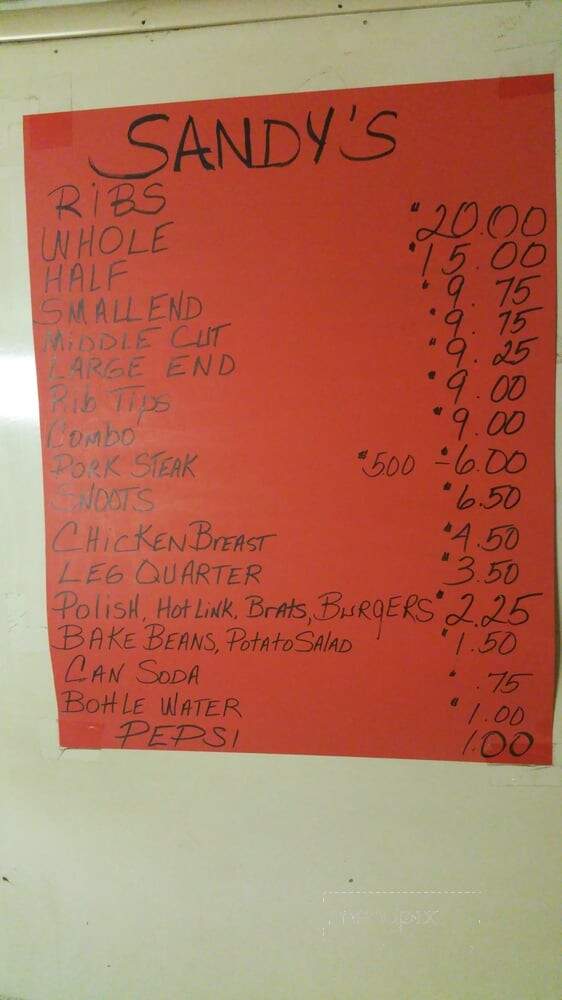 SANDY'S
RIBS
WHOLE $20.00
HALF $15.00
SMALL END $9.75
MIDDLE CUT $9.75
LARGE END $9.25
Rib Tips $9.00
Combo $9.00
PORK STEAK $500 - 6.00
SNOOTS $6.50
CHICKEN BREAST $4.50
LEG QUARTER $3.50
Polish, Hot Link, Brats, BURGERS $2.25
BAKE BEANS, Potato SALAD $1.50
CAN SODA $.75
Bottle WATER $1.00
PEPSI 1.00
menupix